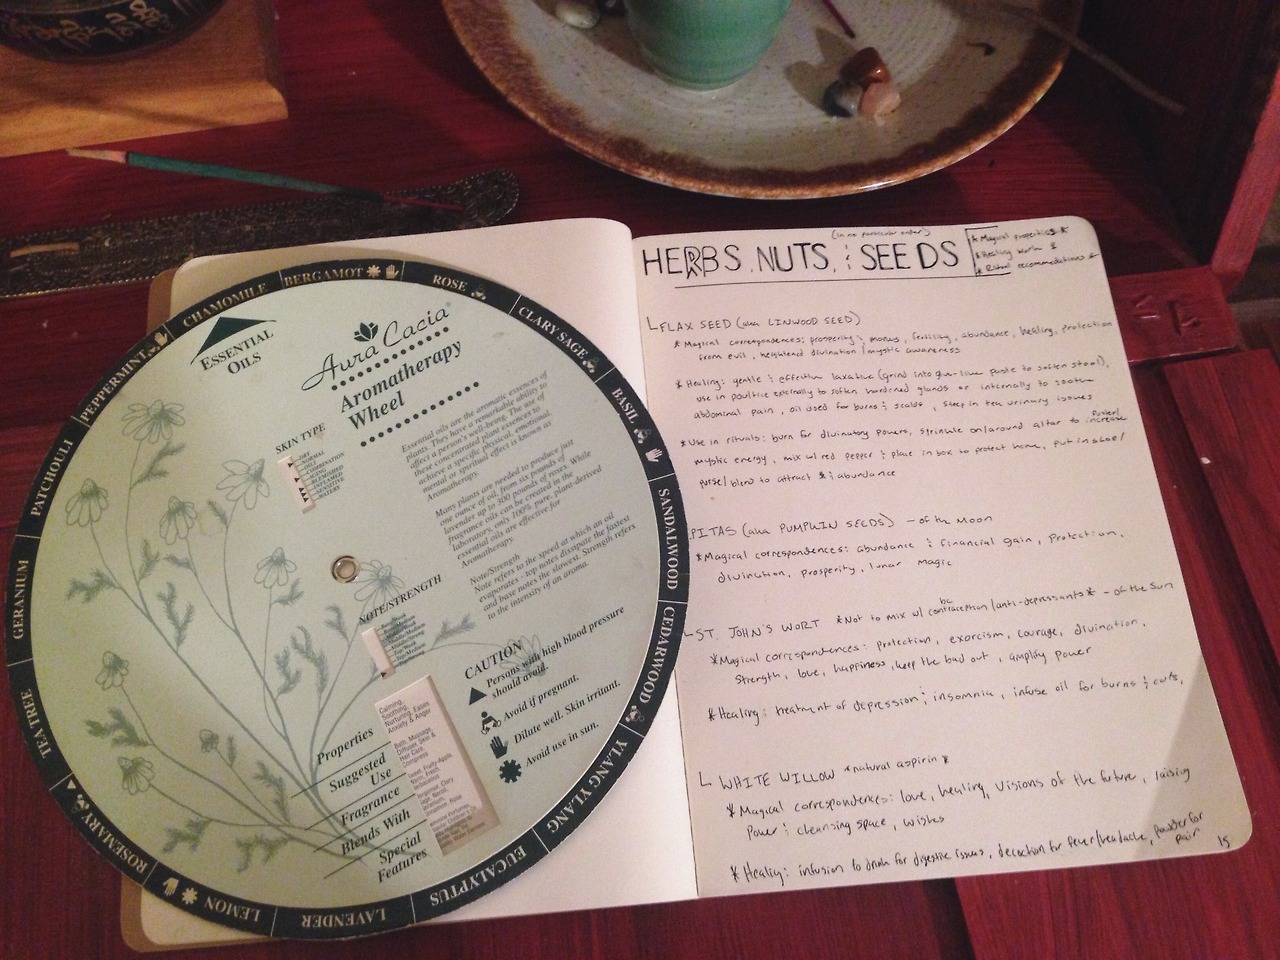 BERGAMOT
ROSE
CLARY SAGE
BASIL
SANDALWOOD
CEDARWOOD
YLANG YLANG
EUCALYPTUS
LAVENDER
LEMON
ROSEMARY
TEA TREE
GERANIUM
PATCHOULI
PEPPERMINT
CHAMOMILE
ESSENTIAL
OILS
Aura Cacia®
Aromatherapy
Wheel
Essential oils are the aromatic essences of
plants. They have a remarkable ability to
affect a person's well-being. The use of
these concentrated plant essences to
achieve a specific physical, emotional,
mental or spiritual effect is known as
Aromatherapy.
Many plants are needed to produce just
one ounce of oil, from six pounds of
lavender up to 300 pounds of roses. While
fragrance oils can be created in the
laboratory, only 100% pure, plant-derived
essential oils are effective for
Aromatherapy.
Note/Strength
Note refers to the speed at which an oil
evaporates - top notes dissipate the fastest
and base notes the slowest. Strength refers
to the intensity of an aroma.
SKIN TYPE
DRY
NORMAL
OILY
COMBINATION
INFLAMED
SENSITIVE
WATERY
NOTE/STRENGTH
CAUTION
Persons with high blood pressure
should avoid.
Avoid if pregnant.
Dilute well. Skin irritant.
Avoid use in sun.
Properties
Calming,
Soothing,
Nurturing, Eases
Anxiety & Anger
Suggested
Use
Bath, Massage,
Diffuser, Skin &
Hair Care,
Compress
Fragrance
Blends With
Special
Features
(in no particular order)
HERBS, NUTS, & SEEDS
* Magical properties *
* Healing work *
* Ritual recommendations *
FLAX SEED (aka LINWOOD SEED)
* Magical correspondences: prosperity & money, fertility, abundance, healing, protection
from evil, heightened divination/mystic awareness
* Healing: gentle & effective laxative (grind into glue-like paste to soften stool),
use in poultice externally to soften hardened glands or internally to soothe
abdominal pain, oil used for burns & scalds, steep in tea urinary issues
* Use in rituals: burn for divinatory powers, sprinkle on/around altar to increase
mystic energy, mix w/ red pepper & place in box to protect home, put in shoe/
purse/ to attract $ & abundance
PITAS (aka PUMPKIN SEEDS) - of the Moon
* Magical correspondences: abundance & financial gain, protection,
divination, prosperity, lunar magic
ST. JOHN'S WORT *Not to mix w/ bc contraception/anti-depressants* - of the Sun
* Magical correspondences: protection, exorcism, courage, divination,
strength, love, happiness, keep the bad out, amplify power
* Healing: treatment of depression & insomnia, infuse oil for burns & cuts,
WHITE WILLOW *natural aspirin*
* Magical correspondences: love, healing, visions of the future, raising
power & cleansing space, wishes
* Healing: infusion to drink for digestive issues, decoction for fever/headache, powder for
pain
15